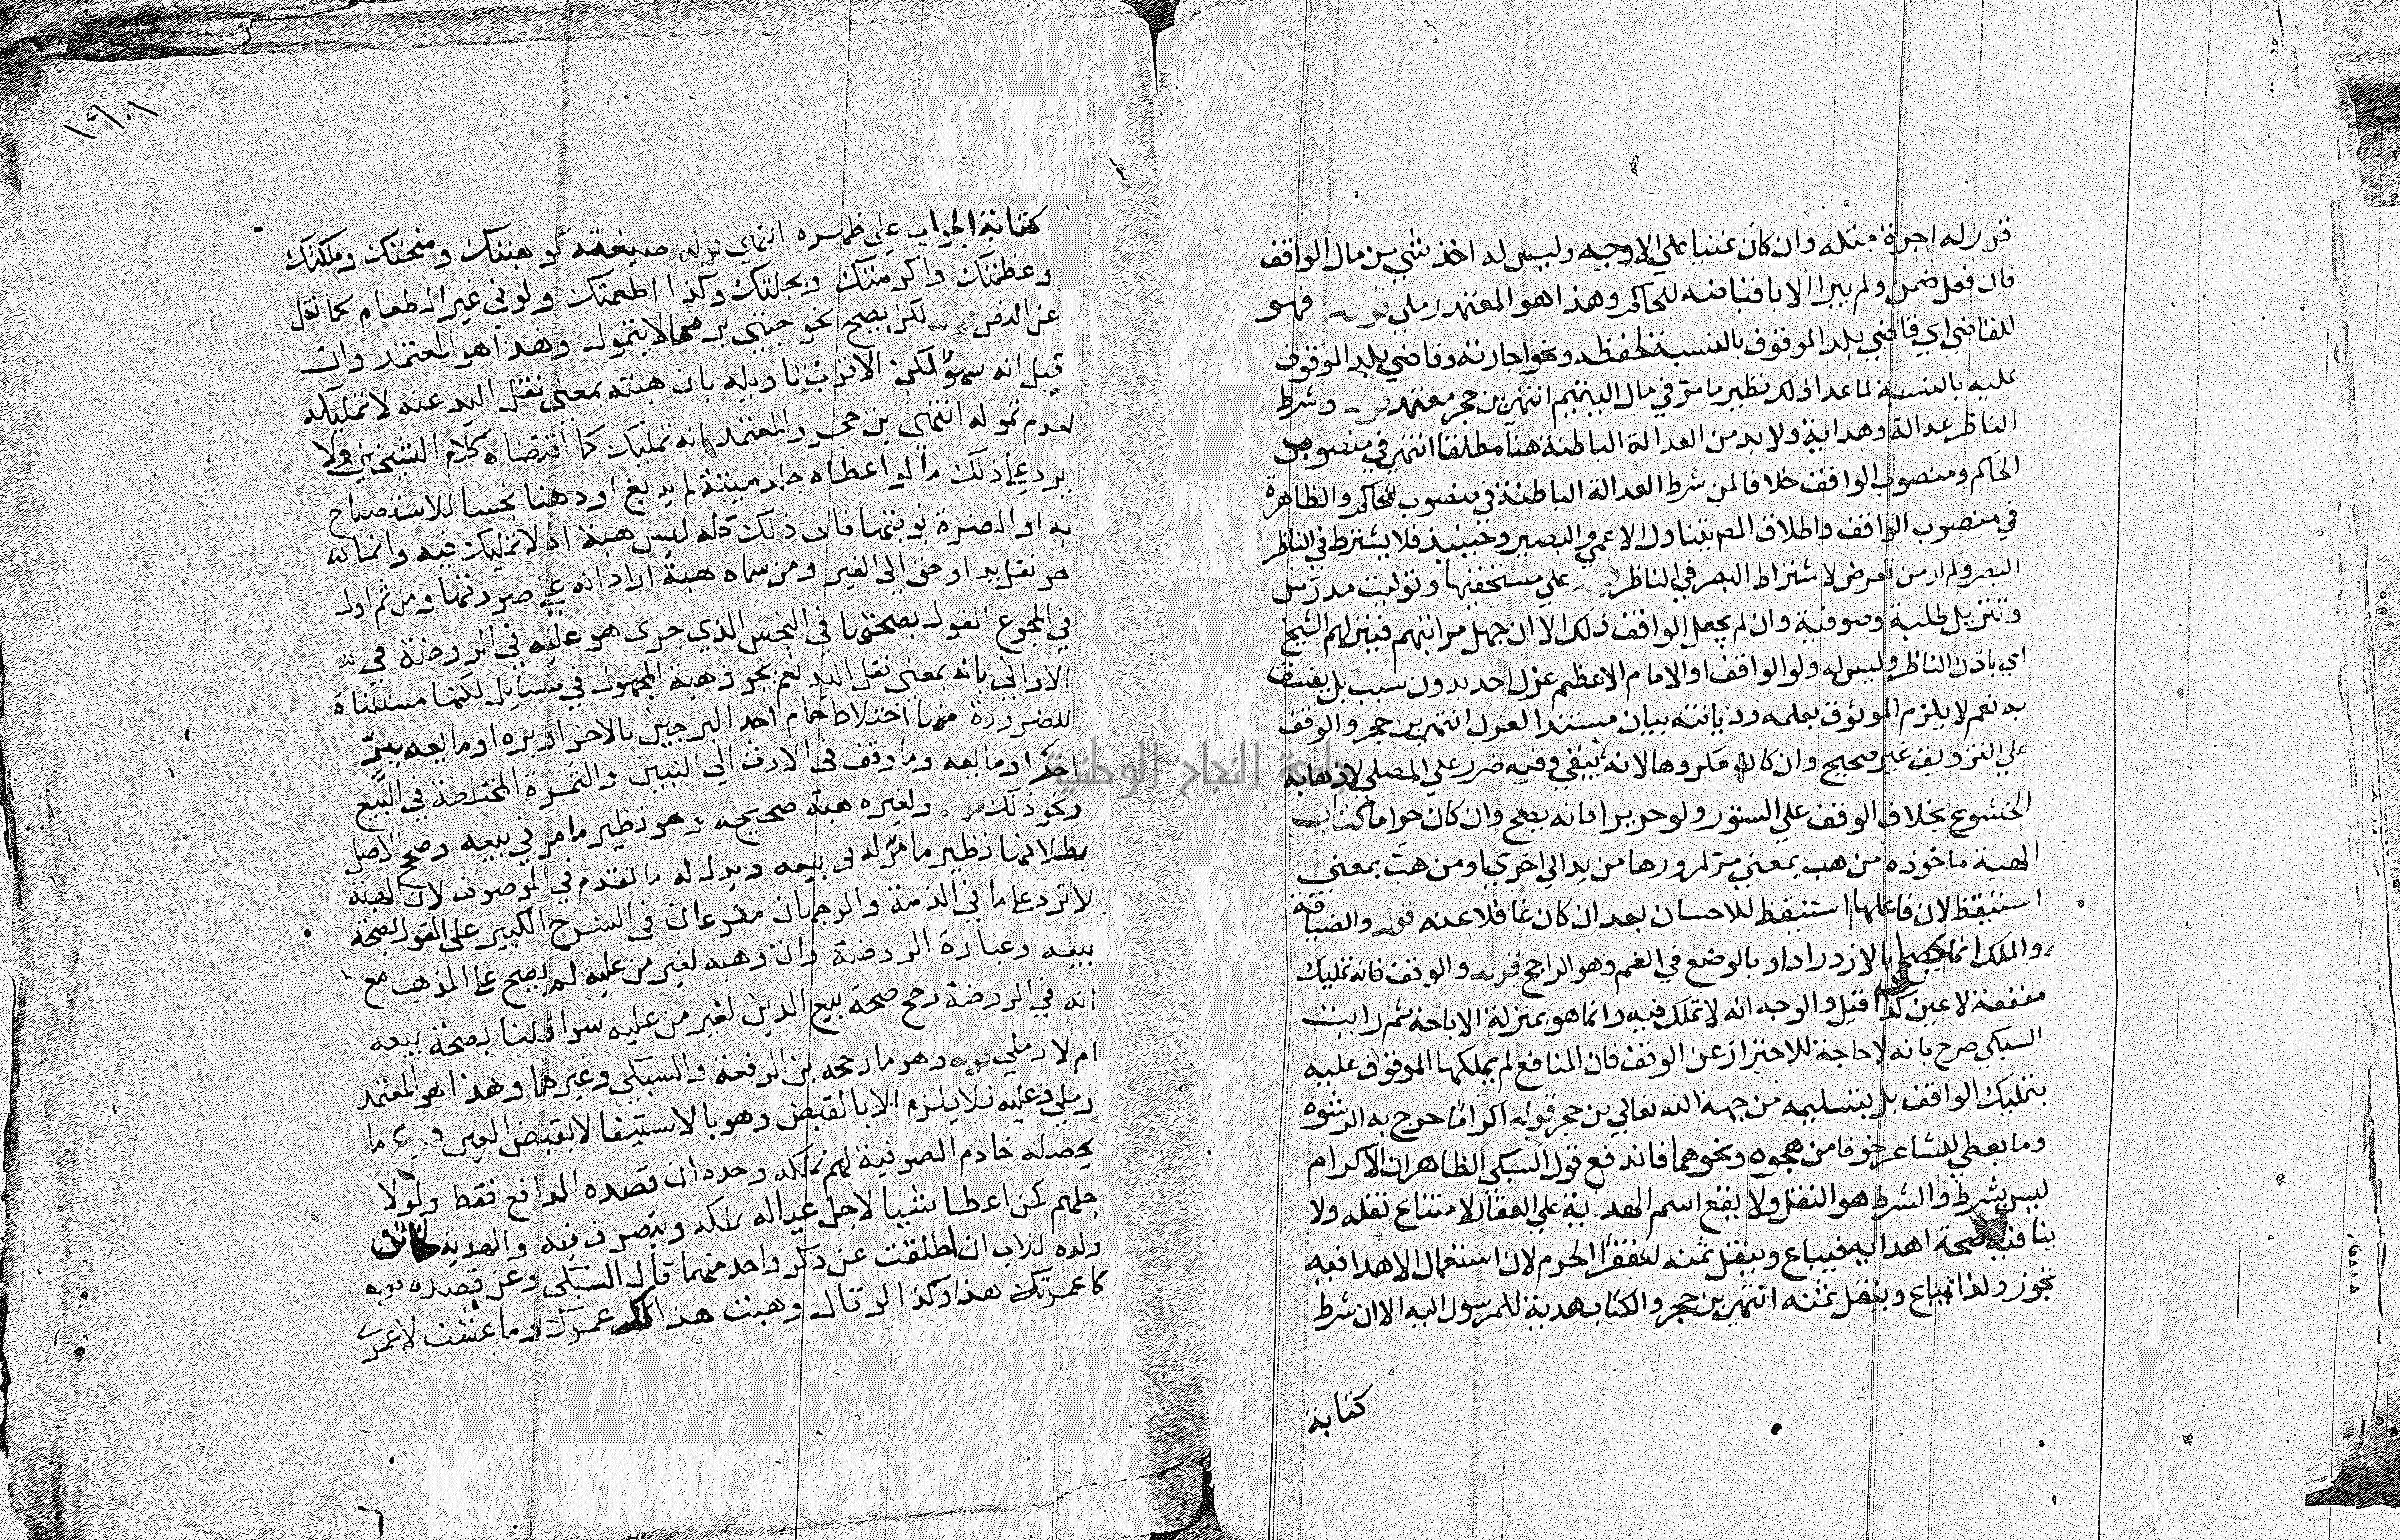 قرر له اجرة مثله وان كان غنيا علي الاوجه وليس له اخذ شي من مال الواقف
فان فعل ضمن ولم يبرا الا باقباضه للحاكم وهذا هو المعتمد رملي قوله فهو
للقاضي اي قاضي بلد الموقوف بالنسبة لحفظه ونحو اجارته وقاضي بلد الموقوف
عليه بالنسبة لما عدا ذلك نظير ما مر في مال اليتيم انتهى بن حجر معتمد قوله وشرط
الناظر عدالة وهداية ولا بد من العدالة الباطنة هنا مطلقا انتهى في منصوب
الحاكم ومنصوب الواقف خلافا لمن شرط العدالة الباطنة في منصوب الحاكم والظاهرة
في منصوب الواقف واطلاق المص يتناول الاعمي والبصير وحينيذ فلا يشترط في الناظر
البصر ولم ار من تعرض لاشتراط البصر في الناظر قوله علي مستحقيها وتوليت مدرس
وتنزيل طلبة وصوفية وان لم يجعل الواقف ذلك الا ان جهل مراتبهم فينزلهم الشيخ
اي باذن الناظر وليس له ولو الواقف او الامام الاعظم عزل احد بدون سبب بل يفسق
به نعم لا يلزم الموثوق بعلمه وديانته بيان مستند العزل انتهى بن حجر والوقف
علي التزويق غير صحيح وان كان مكروها لانه يبقي وفيه ضرر علي المصلي لاذهابه
الخشوع بخلاف الوقف علي الستور ولو حريرا فانه يصح وان كان حراما كتاب
الهبة ماخوذه من هب بمعني مر لمرورها من يد الي اخري او من هب بمعني
استيقظ لان فاعلها استيقظ للاحسان بعد ان كان غافلا عنه قوله والضيافة
والملك انما يحصل بالازدراد او بالوضع في الفم وهو الراجح قوله والوقف فانه تمليك
منفعة لا عين كذا قيل والوجه انه لا تملك فيه وانما هو بمنزلة الاباحة ثم رايت
السبكي صرح بانه لا حاجة للاحتراز عن الوقف فان المنافع لم يملكها الموقوف عليه
بتمليك الواقف بل بتسليمه من جهة الله تعالي بن حجر قوله اكراما خرج به الرشوه
وما يعطي للشاعر خوفا من هجوه ونحوهما فاندفع قول السبكي الظاهر ان الاكرام
ليس بشرط والشرط هو النقل ولا يقع اسم الهدية علي العقار لامتناع نقله ولا
ينافيه صحة اهدايه فيباع وينقل ثمنه لفقرا الحرم لان استعمال الاهدا فيه
تجوز ولذا يباع وينقل ثمنه انتهى بن حجر والكتاب هدية للمرسول اليه الا ان شرط
كتابة
١٩٨
كتابة الجواب علي ظهره انتهي قوله صيغة كوهبتك ومنحتك وملكتك
وعظمتك واكرمتك ونحلتك وكذا اطعمتك ولو في غير الطعام كما نقل
عن النص قوله لكن يصح نحو حبتي بر مما لا يتمول وهذا هو المعتمد وان
قيل انه سهو لكن الاقرب تاويله بان هبته بمعني نقل اليد عنه لا تمليكه
لعدم تموله انتهي بن حجر والمعتمد انه تمليك كما اقتضاه كلام الشيخين ولا
يرد علي ذلك ما لو اعطاه جلد ميتة لم يدبغ او دهنا نجسا للاستصباح
به او الضرة نوبتها فان ذلك كله ليس هبة اذ لا تمليك فيه وانما
هو نقل يد او حق الي الغير ومن سماه هبة اراد انه علي صورتها ومن ثم اول
في المجموع القول بصحتها في النجس الذي جرى هو عليه في الروضة في
الاواني بانه بمعني نقل اليد نعم يجوز هبة المجهول في مسايل لكنها مستثناة
للضرورة منها اختلاط حمام احد البرجين بالاخر او بره او مايعه ببر
اخر او مايعه وما وقف في الارث الي التبيين والثمرة المختلطة في البيع
ونحو ذلك قوله ولغيره هبة صحيحه وهو نظير ما مر في بيعه وصحح الاصل
بطلانها نظير ما مر له في بيعه ويدل له ما تقدم في الموصوف لان الهبة
لا ترد علي ما في الذمة والوجهان مفرعان في الشرح الكبير على القول بصحة
بيعه وعبارة الروضة وان وهبه لغير من عليه لم يصح علي المذهب مع
انه في الروضة رجح صحة بيع الدين لغير من عليه سوا قلنا بصحة بيعه
ام لا رملي قوله وهو ما رجحه بن الرفعة والسبكي وغيرها وهذا هو المعتمد
رملي وعليه فلا يلزم الا بالقبض وهو بالاستيفا لا بقبض العين فرع ما
يحصله خادم الصوفية لهم يملكه وحده ان قصده الدافع فقط ولولا
جلهم كمن اعطا شييا لاجل عياله يملكه ويتصرف فيه والهدية
ولده للاب ان اطلقت عن ذكر واحد منهما قال السبكي وعن قصده قوله
كاعمرتك هذا وكذا لو قال وهبت هذا لك عمرك وما عشت لاعمري
جامعة النجاح الوطنية